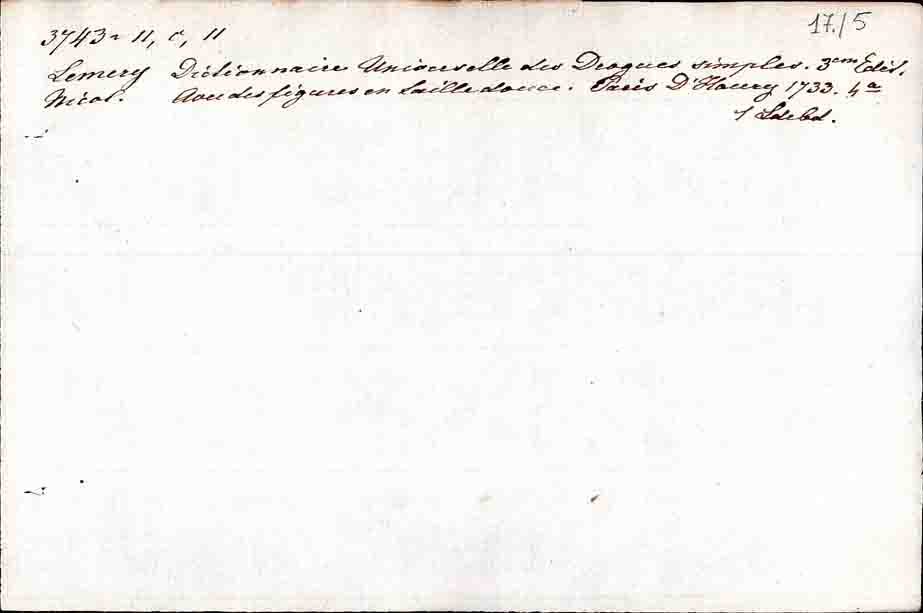 17./5
3743 11, c, 11
Lemery Dictionnaire Universelle des Drogues simples. 3em Edit.
Nicol. Avec des figures en taille douce. Paris D'Houry 1733. 4º
1 Ldrbd.